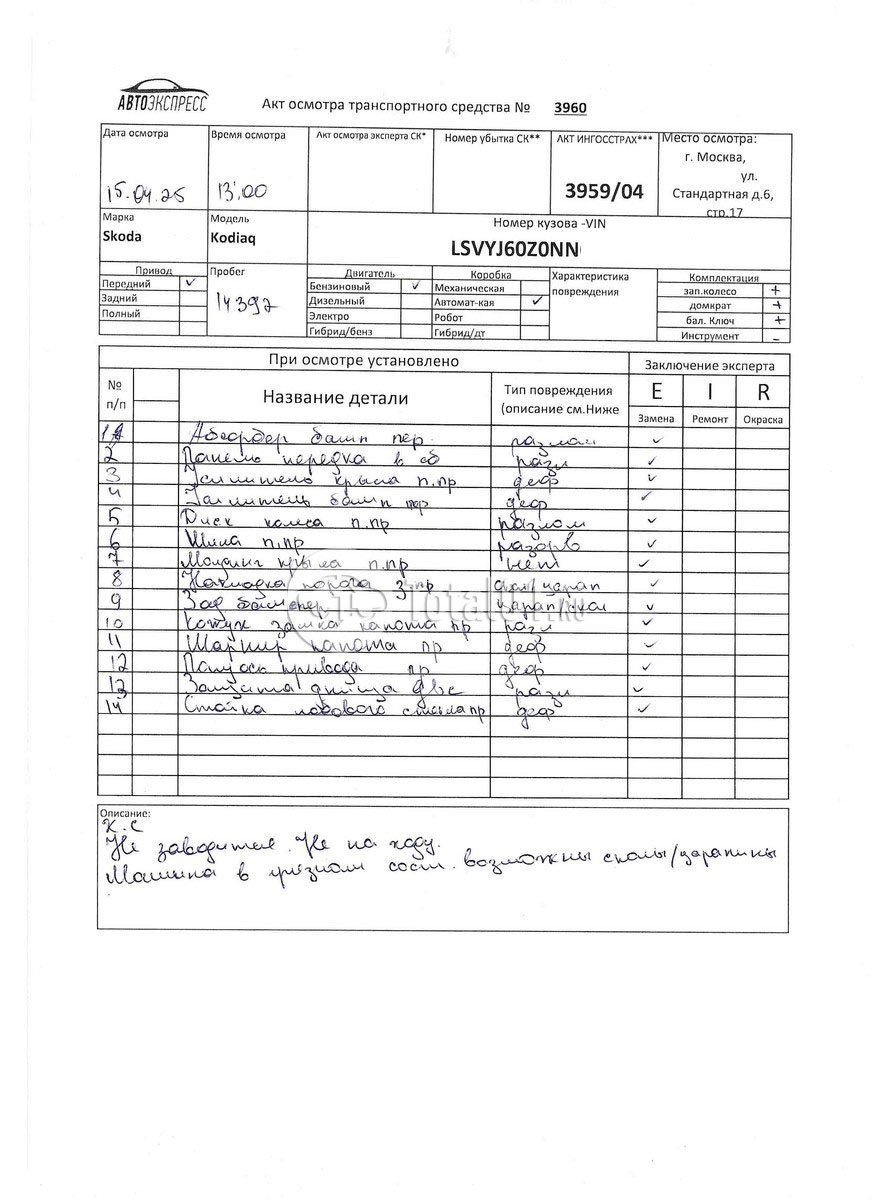 АВТОЭКСПРЕСС
Акт осмотра транспортного средства № 3960
Дата осмотра Время осмотра Акт осмотра эксперта СК* Номер убытка СК** АКТ ИНГОССТРАХ*** Место осмотра:
г. Москва,
ул.
15.04.25 13:00 3959/04 Стандартная д.6,
стр.17
Марка Модель Номер кузова -VIN
Skoda Kodiaq LSVYJ60Z0NN
Привод Пробег Двигатель Коробка Характеристика Комплектация
Передний ✓ Бензиновый ✓ Механическая повреждения зап.колесо +
Задний 14392 Дизельный Автомат-кая ✓ домкрат +
Полный Электро Робот бал. Ключ +
Гибрид/бенз Гибрид/дт Инструмент -
При осмотре установлено Заключение эксперта
№ п/п Название детали Тип повреждения E I R
(описание см.Ниже Замена Ремонт Окраска
1 Абсорбер бамп пер. разлом ✓
2 Панель передка в сб разл ✓
3 Усилитель крыла п.пр деф ✓
4 Усилитель бамп пер деф ✓
5 Диск колеса п.пр разлом ✓
6 Шина п.пр разорв ✓
7 Молдинг крыла п.пр нет ✓
8 Накладка порога з.пр царап ✓
9 Зад бампер царап скол ✓
10 Кожух замка капота пр разл ✓
11 Шарнир капота пр деф ✓
12 Полуось привода пр деф ✓
13 Защита днища ДВС разл ✓
14 Стойка лобового стекла пр деф ✓
TotalOut.RU
Описание:
К.С
Не заводится. Не на ходу.
Машина в грязном сост. возможны сколы/царапины